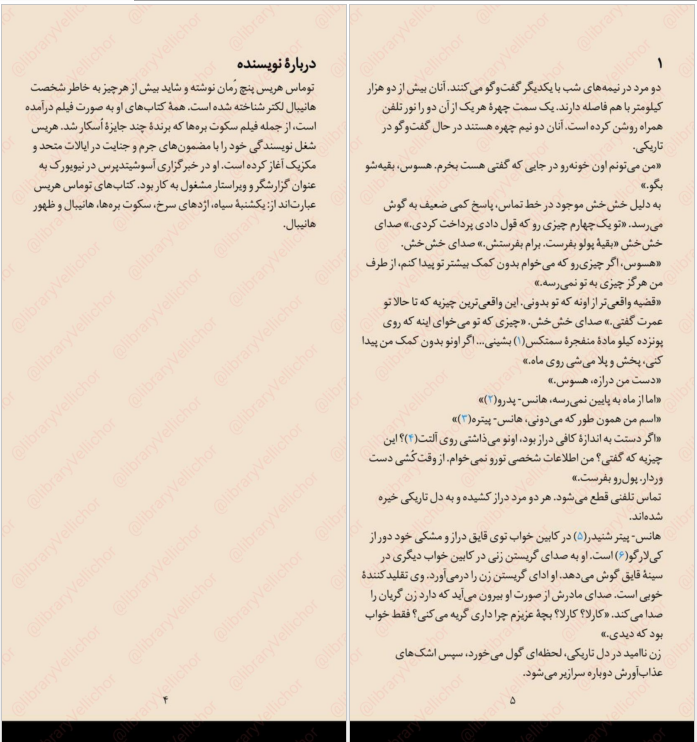 ۱
دو مرد در نیمه‌های شب با یکدیگر گفت‌وگو می‌کنند. آنان بیش از دو هزار
کیلومتر با هم فاصله دارند. یک سمت چهرۀ هر یک از آن دو را نور تلفن
همراه روشن کرده است. آنان دو نیم چهره هستند در حال گفت‌وگو در
تاریکی.
«من می‌تونم اون خونه‌رو در جایی که گفتی هست بخرم. هسوس، بقیه‌شو
بگو.»
به دلیل خش‌خش موجود در خط تماس، پاسخ کمی ضعیف به گوش
می‌رسد. «تو یک‌چهارم چیزی رو که قول دادی پرداخت کردی.» صدای
خش‌خش «بقیۀ پولو بفرست. برام بفرستش.» صدای خش‌خش.
«هسوس، اگر چیزی‌رو که می‌خوام بدون کمک بیشتر تو پیدا کنم، از طرف
من هرگز چیزی به تو نمی‌رسه.»
«قضیه واقعی‌تر از اونه که تو بدونی. این واقعی‌ترین چیزیه که تا حالا تو
عمرت گفتی.» صدای خش‌خش. «چیزی که تو می‌خوای اینه که روی
پونزده کیلو مادۀ منفجرۀ سمتکس(۱) بشینی... اگر اونو بدون کمک من پیدا
کنی، پخش و پلا می‌شی روی ماه.»
«دست من درازه، هسوس.»
«اما از ماه به پایین نمی‌رسه، هانس- پدرو(۲)»
«اسم من همون طور که می‌دونی، هانس- پیتره(۳)»
«اگر دستت به اندازۀ کافی دراز بود، اونو می‌ذاشتی روی آلتت(۴)؟ این
چیزیه که گفتی؟ من اطلاعات شخصی تورو نمی‌خوام. از وقت‌کُشی دست
وردار. پول‌رو بفرست.»
تماس تلفنی قطع می‌شود. هر دو مرد دراز کشیده و به دل تاریکی خیره
شده‌اند.
هانس- پیتر شنیدر(۵) در کابین خواب توی قایق دراز و مشکی خود دور از
کی‌لارگو(۶) است. او به صدای گریستن زنی در کابین خواب دیگری در
سینۀ قایق گوش می‌دهد. او ادای گریستن زن را درمی‌آورد. وی تقلیدکنندۀ
خوبی است. صدای مادرش از صورت او بیرون می‌آید که دارد زن گریان را
صدا می‌کند. «کارلا؟ کارلا؟ بچۀ عزیزم چرا داری گریه می‌کنی؟ فقط خواب
بود که دیدی.»
زن ناامید در دل تاریکی، لحظه‌ای گول می‌خورد، سپس اشک‌های
عذاب‌آورش دوباره سرازیر می‌شود.
۵
دربارۀ نویسنده
توماس هریس پنج رُمان نوشته و شاید بیش از هرچیز به خاطر شخصت
هانیبال لکتر شناخته شده است. همۀ کتاب‌های او به صورت فیلم درآمده
است، از جمله فیلم سکوت بره‌ها که برندۀ چند جایزۀ اُسکار شد. هریس
شغل نویسندگی خود را با مضمون‌های جرم و جنایت در ایالات متحد و
مکزیک آغاز کرده است. او در خبرگزاری آسوشیتدپرس در نیویورک به
عنوان گزارشگر و ویراستار مشغول به کار بود. کتاب‌های توماس هریس
عبارت‌اند از: یکشنبۀ سیاه، اژدهای سرخ، سکوت بره‌ها، هانیبال و ظهور
هانیبال.
۴